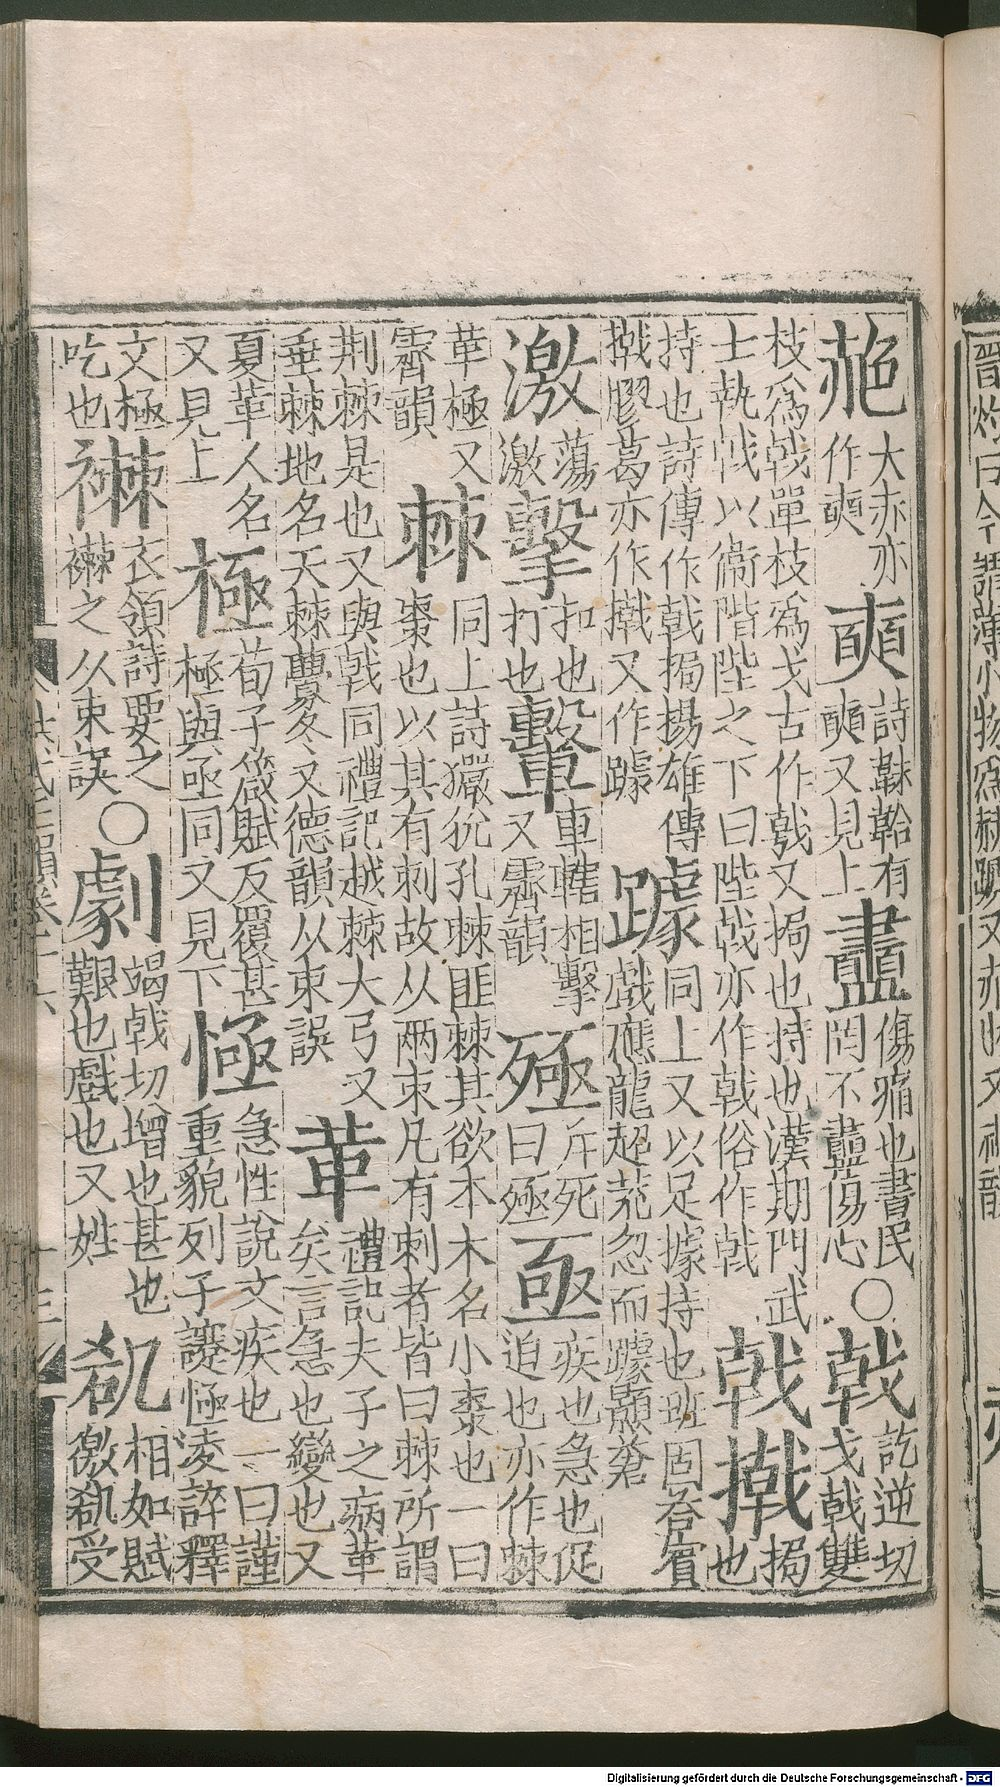 赩 大赤亦作奭 奭 詩韎韐有奭又見上 衋 傷痛也書民罔不衋傷心 ○ 戟 訖逆切戈戟雙
枝爲戟單枝爲戈古作戟又挶也持也漢期門武士執戟以衞階陛之下曰陛戟亦作戟俗作戟 戟 撠 挶也
持也詩傳作戟挶揚雄傳撠膠葛亦作撠又作躆 躆 同上又以足據持也班固荅賓戲應龍超荒忽而躆顥蒼
激 蕩激 擊 扣也打也 轚 車轄相擊又霽韻 殛 斥死曰殛 亟 疾也急也促迫也亦作棘
革極又霽韻 棘 同上詩玁狁孔棘匪棘其欲本木名小棗也一曰棗也以其有刺故从兩朿凡有刺者皆曰棘所謂
荆棘是也又與戟同禮記越棘大弓又垂棘地名天棘虋冬又德韻从朿誤 革 禮記夫子之病革矣言急也變也又
夏革人名又見上 極 荀子箴賦反覆甚極與亟同又見下 悈 急性說文疾也一曰謹重貌列子護悈淩誶釋
文極吃也 襋 衣領詩要之襋之从朿誤 ○ 劇 竭戟切增也甚也艱也戲也又姓 㕁 相如賦徼㕁受
Digitalisierung gefördert durch die Deutsche Forschungsgemeinschaft - DFG